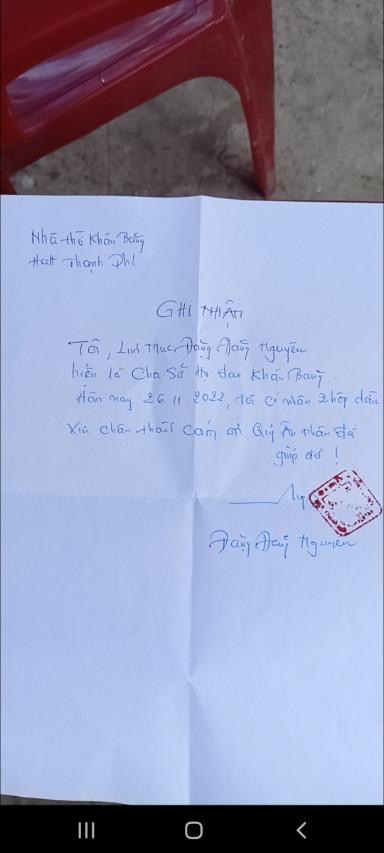 Nhà thờ Khánh Bang
Thạnh Phú
GHI NHẬN
Tôi, Linh Mục Đặng Đang Nguyên
hiện là Cha Sở Họ đạo Khánh Bang.
Hôm nay 26 11 2022, tôi có nhận 2 hộp đàn
Xin chân thành cám ơn Quý Ân nhân đã
giúp đỡ !
Đặng Đang Nguyên